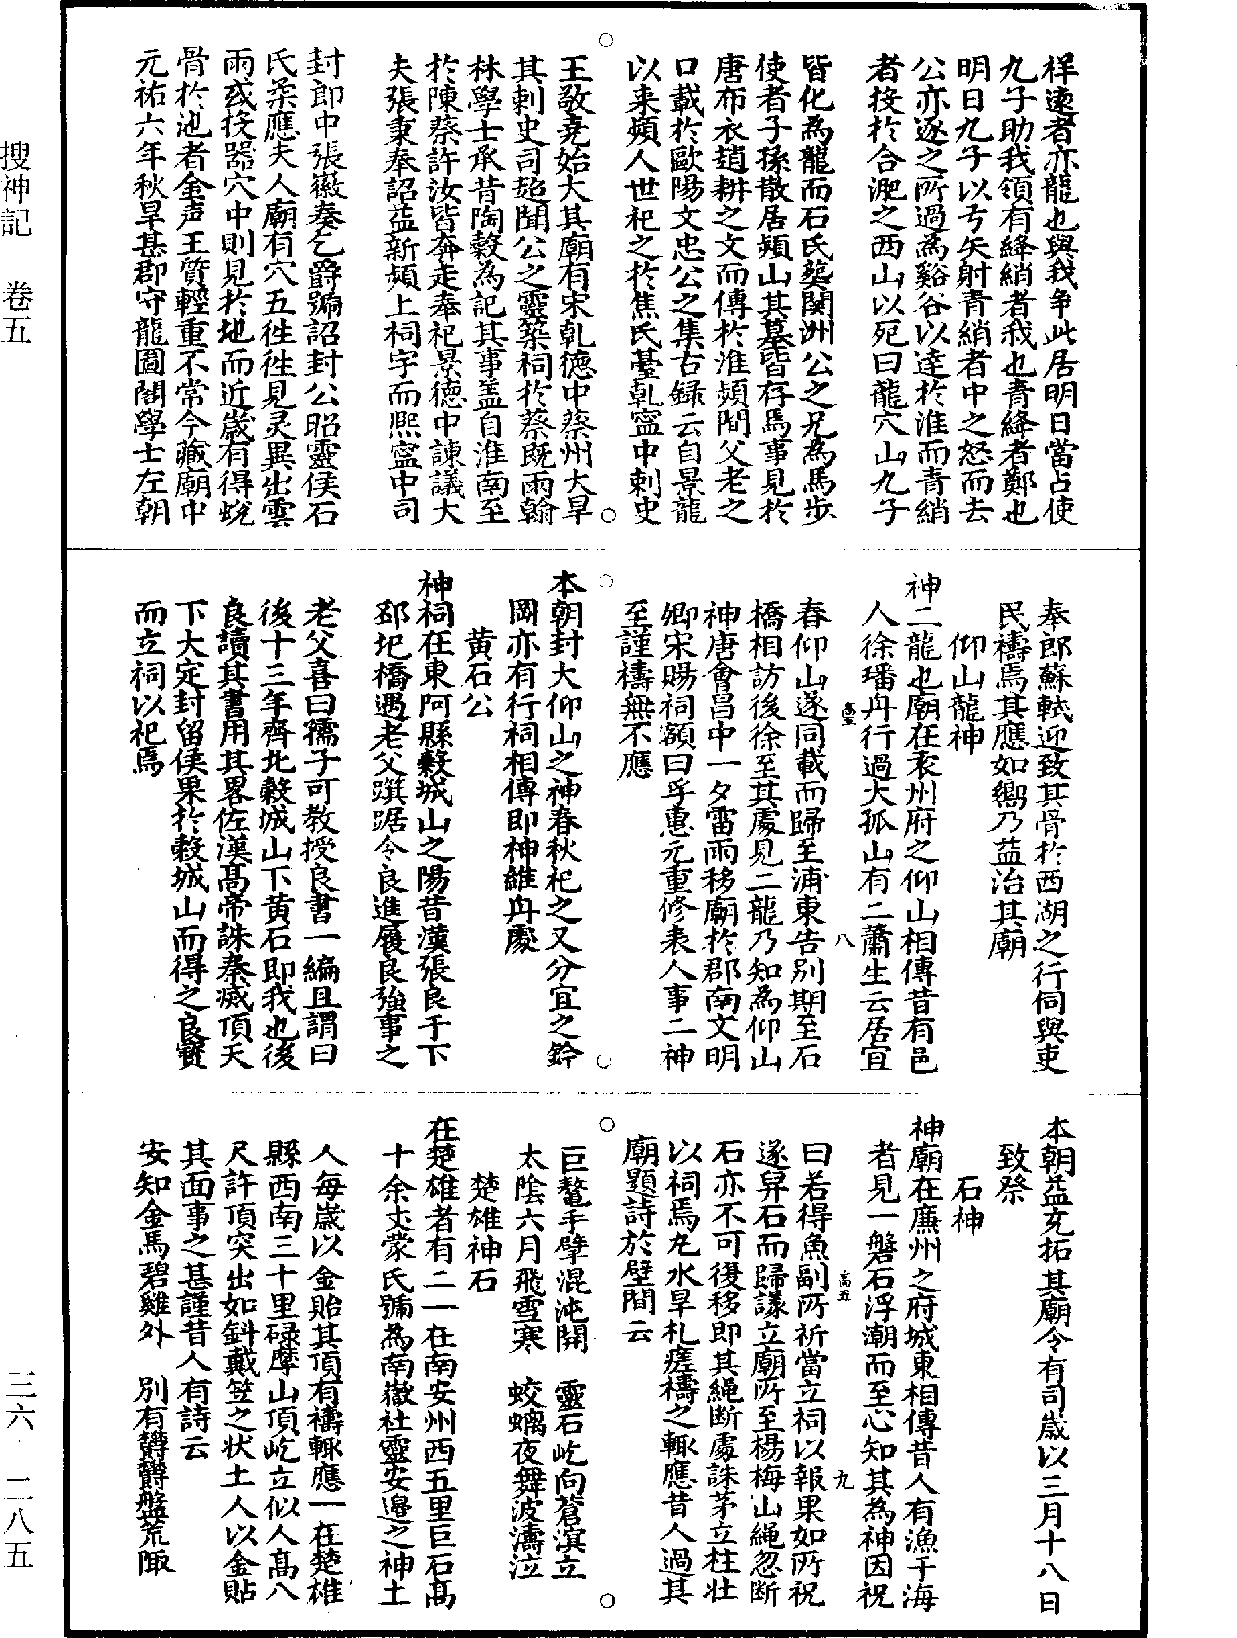 祥遠者亦龍也與我争此居明日當占使
九子助我領有絳綃者我也青綃者鄭也
明日九子以弓矢射青綃者中之怒而去
公亦逐之所過為谿谷以達於淮而青綃
者投於合淝之西山以死曰龍穴山九子
皆化為龍而石氏葬関洲公之兄為馬步
使者子孫散居潁山其墓皆存焉事見於
唐布衣趙耕之文而傳於淮潁間父老之
口載於歐陽文忠公之集古録云自景龍
以来潁人世祀之於焦氏臺乹寧中刺史
王敬蕘始大其廟有宋乹德中蔡州大旱
其刺史司超聞公之靈築祠於蔡既雨翰
林學士承旨陶穀為記其事盖自淮南至
於陳蔡許汝皆奔走奉祀景德中諌議大
夫張秉奉詔益新潁上祠宇而熈寧中司
封郎中張徽奏乞爵號詔封公昭靈侯石
氏柔應夫人廟有穴五徃徃見灵異出雲
雨或投器穴中則見於地而近歲有得蛻
骨於池者金声玉質輕重不常今藏廟中
元祐六年秋旱甚郡守龍圖閣學士左朝
奉郎蘇軾迎致其骨於西湖之行祠與吏
民禱焉其應如嚮乃益治其廟
仰山龍神
神二龍也廟在袁州府之仰山相傳昔有邑
人徐璠舟行過大孤山有二蕭生云居宜
春仰山遂同載而歸至浦東告别期至石
橋相訪後徐至其處見二龍乃知為仰山
神唐會昌中一夕雷雨移廟於郡南文明
卿宋賜祠額曰孚惠元重修表人事二神
至謹禱無不應
本朝封大仰山之神春秋祀之又分宜之鈐
岡亦有行祠相傳即神維舟處
黄石公
神祠在東阿縣穀城山之陽昔漢張良于下
邳圯橋遇老父蹼踞令良進履良強事之
老父喜曰孺子可教授良書一編且謂曰
後十三年齊北穀城山下黄石即我也後
良讀其書用其畧佐漢髙帝誅秦滅項天
下大定封留侯果於穀城山而得之良寳
而立祠以祀焉
本朝益充拓其廟令有司歲以三月十八日
致祭
石神
神廟在廉州之府城東相傳昔人有漁于海
者見一磐石浮潮而至心知其為神因祝
曰若得魚副所祈當立祠以報果如所祝
遂舁石而歸議立廟所至楊梅山繩忽断
石亦不可復移即其繩断處誅茅立柱壮
以祠焉凡水旱札瘥禱之輒應昔人過其
廟題詩於壁間云
巨鰲手擘混沌開　靈石屹向蒼溟立
太陰六月飛雪寒　蛟螭夜舞波濤泣
楚雄神石
在楚雄者有二一在南安州西五里巨石髙
十余丈蒙氏號為南嶽社靈安邉之神土
人毎歲以金貽其頂有禱輒應一在楚雄
縣西南三十里碌摩山頂屹立似人髙八
尺許頂突出如斜戴笠之状土人以金貼
其面事之甚謹昔人有詩云
安知金馬碧雞外　别有欝欝盤荒陬
髙五
八
髙五
九
搜神記　卷五
三六・二八五